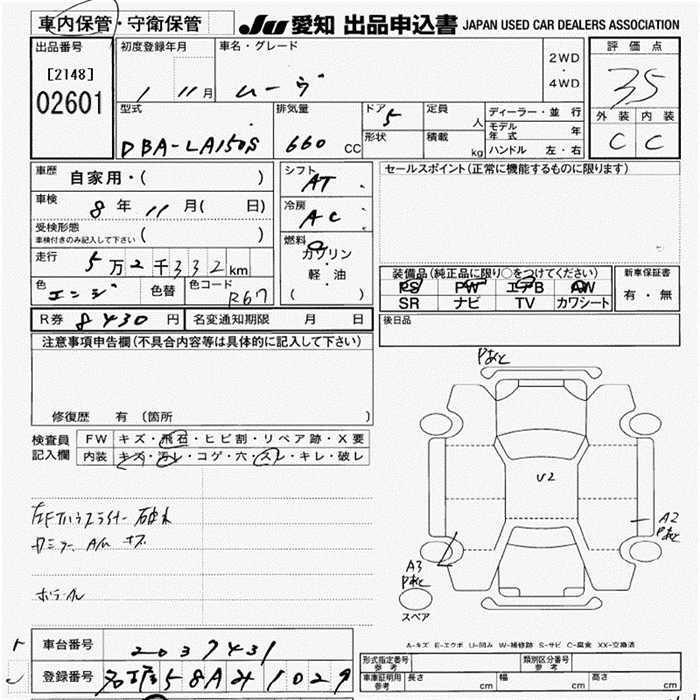 車内保管・守衛保管 JU 愛知 出品申込書 JAPAN USED CAR DEALERS ASSOCIATION
出品番号 初度登録年月 車名・グレード 2WD・4WD 評価点
[2148] 1 11月 ムーヴ 3.5
02601 外装 内装
型式 排気量 ドア 5 定員 人 ディーラー・並行 C C
モデル年式 年
DBA-LA150S 660 CC 形状 積載 kg ハンドル 左・右
車歴 自家用・( ) シフト AT セールスポイント(正常に機能するものに限ります)
車検 8年 11月( 日) 冷房 AC
受検形態 車検付きのみ記入して下さい ( ) 燃料 ガソリン・軽・油 ( )
走行 5万2千332km
装備品(純正品に限り○をつけてください) 新車保証書
PS PW エアB AW 有・無
SR ナビ TV カワシート
色 エンジ 色替 色コード R67
R券 8430円 名変通知期限 月 日 後日品
注意事項申告欄(不具合内容等は具体的に記入して下さい)
修復歴 有 (箇所 )
検査員記入欄 FW キズ・飛石・ヒビ割・リペア跡・X要
内装 キズ・汚レ・コゲ・穴・スレ・キレ・破レ
Pあと
U2
A2
Pあと
A3
Pあと
スペア
左Fインナーライナー 破れ
ホイール
A-キズ E-エクボ U-凹み W-補修跡 S-サビ C-腐食 XX-交換済
車台番号 2037431
登録番号 58 1029
形式指定番号 参考 類別区分番号 参考
車庫証明用 参考 長さ cm 幅 cm 高さ cm